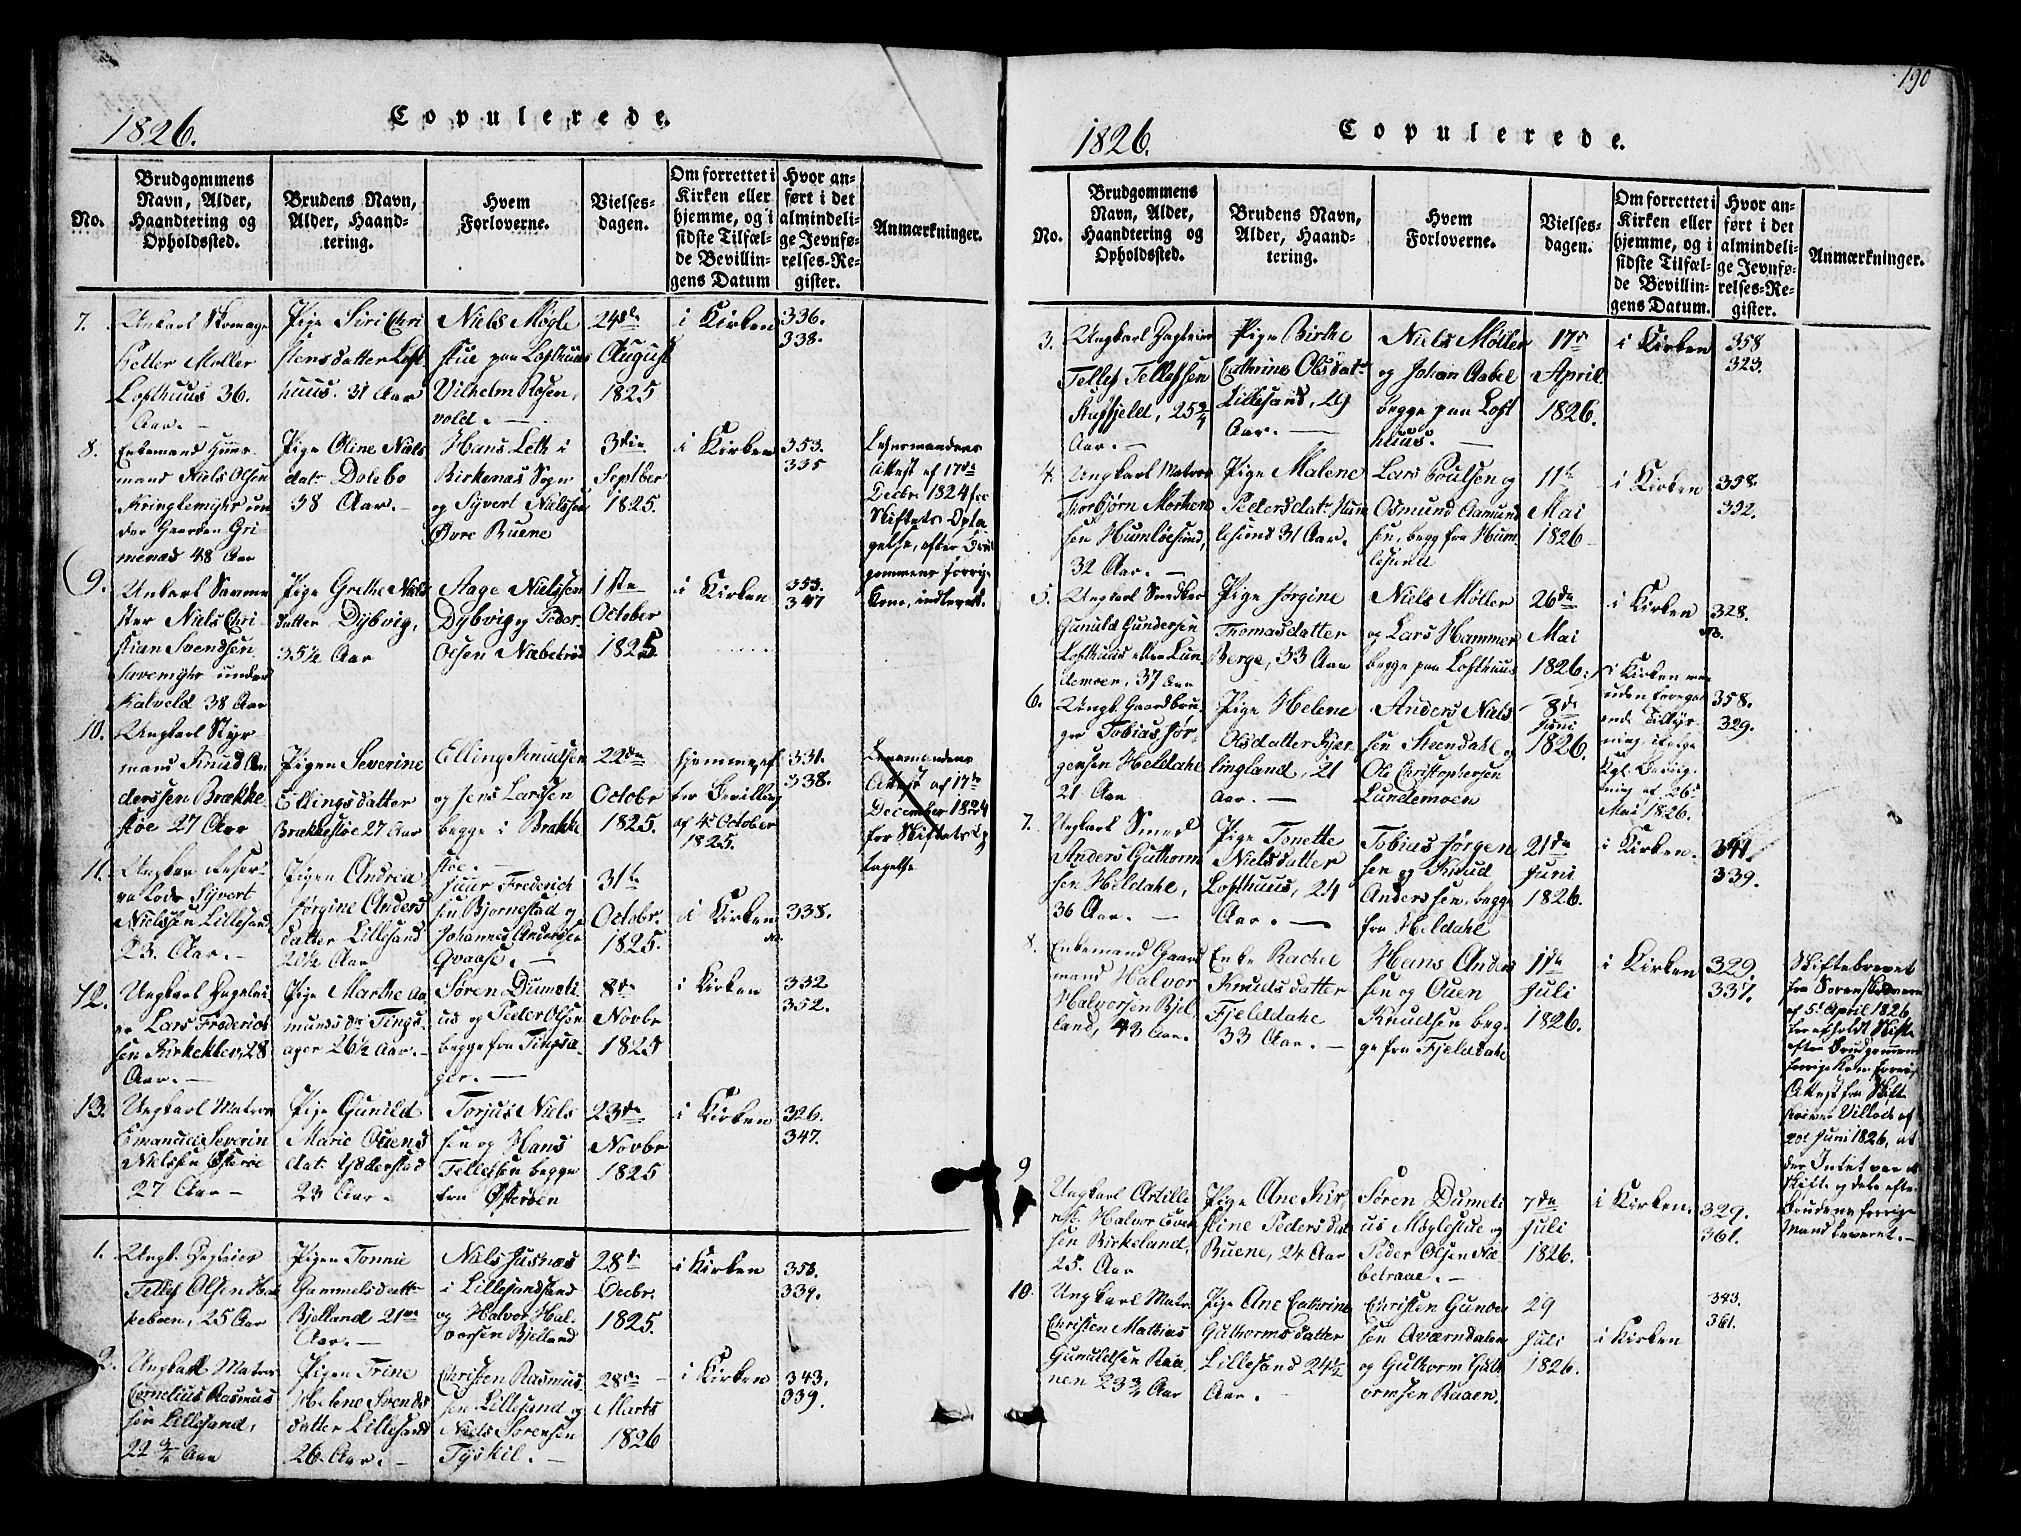 190
1826.
Copulerede.
No.
Brudgommens Navn, Alder, Haandtering og Opholdssted.
Brudens Navn, Alder, Haandtering.
Hvem Forloverne.
Vielsesdagen.
Om forrettet i Kirken eller hjemme, og i sidste Tilfælde Bevillingens Datum
Hvor anført i det almindelige Jevnførelses-Register.
Anmærkninger.
7.
Petter Møller
Lofthuus 36.
Aar. —
Pige Siri Chri
stensdatter Loft
huus. 31 Aar
Niels Møgle
stue paa Lofthuus
Vilhelm Rosen,
vold. —
24de
August
1825
i Kirken
336.
338.
8.
Enkemand Huus
mand Niels Olsen
der Gaarden Gri
menæs 48 Aar
Pige Oline Niels
datr Dolebo
38 Aar. —
Hans Leth i
Birkenæs Sogn
og Syvert Nielssen
Øvre Buene
3die
Septber
1825.
i Kirken
353.
335
Lehnsmandens
Attest af 17de
Decbr. 1824 for
Skiftets Opta
gelse, efter Brud
gommens forrige
Kone, indleveret.
9.
ster Niels Chri
stian Svendsen
Kalveld 38 Aar
Pige Grethe Niels
datter Dybvig,
35½ Aar
Aage Nielssen
Dybvig og Peder
Olsen Næbetræe
1ste
October
1825
i Kirken
353.
347
10.
Ungkarl Styr
mand Knud An
derssen Brække
støe 27 Aar
Pigen Severine
Ellingsdatter
Brækkestøe 27 Aar
Elling Knudsen
og Jens Larssen
begge i Brække
støe. —
22de
Octobr
1825.
hjemme, ef
ter Bevilling
af 4de October
1825.
331.
338.
Lensmandens
Attest af 17de
December 1824
for Skiftets Op
tagelse
11.
Nielssen Lillesand
23. Aar. —
Pigen Andrea
Jørgine Anders
datter Lillesand
20½ Aar
Juur Frederich
sen Bjornestad og
Johannes Anderssen
Qvaase. —
31te
Octobr.
1825.
i Kirken
338.
12.
er Lars Frederich
sen Kirkeklev, 28
Aar. —
Pige Marthe Aa
mundsdr Tings,
ager 26½ Aar. —
Søren Dumeti
us og Peder Olsen
begge fra Tingsa
ger. —
8de
Novbr
1825
i Kirken
332
352.
13.
Ungkarl Matros
Emanuel Severin
Nielssen Østerøe
27 Aar —
Pige Gunild
Marie Ouens
23 Aar. —
Torjus Niels
sen og Hans
Tellefsen begge
fra Østerøen
23de
Novbr
1825
i Kirken
326.
347.
1.
Tellef Olsen
25 Aar
Pigen Tonnie
Gammelsdattr
Bjelland 21
Aar. —
Niels Jusnæs
i Lillesandsand
og Halvor Hal
vorsen Bjelland
28de
Decbr.
1825.
i Kirken
358.
339.
2.
Ungkarl Matros
Cornelius Rasmus
sen Lillesand,
22 ¾ Aar
Pigen Trine
Helene Svends
datter Lillesand
26 Aar. —
Christen Rasmus
sen Lillesand og
Niels Sørensen
Tyskil. —
28de
Marts
1826
i Kirken
343.
339.
1826.
Copulerede.
No.
Brudgommens Navn, Alder, Haandtering og Opholdssted.
Brudens Navn, Alder, Haandtering.
Hvem Forloverne.
Vielsesdagen.
Om forrettet i Kirken eller hjemme, og i sidste Tilfælde Bevillingens Datum.
Hvor anført i det almindelige Jevnførelses-Register.
Anmærkninger.
3.
Tellef Tellefsen
25¾
Aar. —
Pige Birthe
Cathrine Olsdatr
Lillesand, 29
Aar. —
Niels Møller
og Johan Aabel
begge paa Loft
huus. —
17de
April
1826.
i Kirken
358
323.
4.
Ungkarl Matros
Torbjørn Morten
sen Humlesund,
32 Aar. —
Pige Malene
Pedersdatr Hum
lesund 31 Aar.
Lars Poulsen og
Osmund Aamund
sen, begge fra Hum
lesund
11te
Mai
1826
i Kirken
358.
352.
5.
Gunuld Gundersen
Lofthuus eller Lun
demoen, 37 Aar
Pige Jørgine
Thomasdatter
Berge, 33 Aar
Niels Møller
og Lars Hammer
begge paa Lofthuus
26de
Mai
1826.
i Kirken
328.
6.
Ungk. Gaardbru
ger Tobias Jør,
gensen Heldahl
21 Aar
Pige Helene
Olsdatter Kjær
lingland, 21
Aar. —
Anders Niels
sen Steendahl og
Ole Christophersen
Lundemoen
8de
Juni
1826.
i Kirken
uden foregaa
ende Tillys
ning, ifølge
Kgl. Bevilg
ning af 26de
Mai 1826.
358.
329.
7.
Ungkarl Smed
Anders Guthorm
sen Heldahl,
36 Aar. —
Pige Tonette
Nielsdatter
Lofthuus, 24
Aar. —
Tobias Jørgen
sen og Knud
Anderssen, begge
fra Heldahl
21de
Juni
1826.
i Kirken.
341.
339.
8.
Enkemand Gaard
mand Halvor
Halvorsen Bjel
land, 43 Aar.
Enke Rachel
Knudsdatter
Fjeldahl
33 Aar. —
Hans Anders
sen og Ouen
Knudsen beg
ge fra Fjeldahl
11te
Juli
1826.
i Kirken
329.
337.
Skiftebrevet
fra Sorenskriveren
af 5te April 1826,
for afholdt Skifte
efter Brudgommens
forrige Kone,
Attest fra Skifte
af
20de Juni 1826, at
der Intet var at
skifte og dele efter
Brudens forrige
Mand leveret. —
9
Ungkarl Artille
rist Halvor
sen Birkeland,
25. Aar
Pige Ane Kir,
stine Pedersdatr
Buene, 24 Aar
Søren Dumeti
us Møglestue og
Peder Olsen Næ
betraae. —
7de
Juli
1826.
i Kirken.
329.
361.
10.
Ungkarl Matros
Christen Mathias
Gunuldsen
23¾ Aar
Pige Ane Cathrine
Guthormsdatter
Lillesand 24½
Aar. —
Christen Gunder
sen
og Guthorm Guth
ormsen Ruaen.
29
Juli
1826.
i Kirken
343.
361.